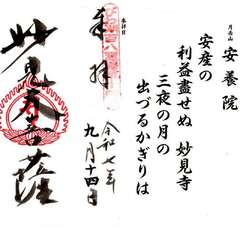 月光山
安養院
安産の
利益盡せぬ 妙見寺
三夜の月の
出づるかぎりは
奉拝
令和七年
九月十四日
妙見大菩薩